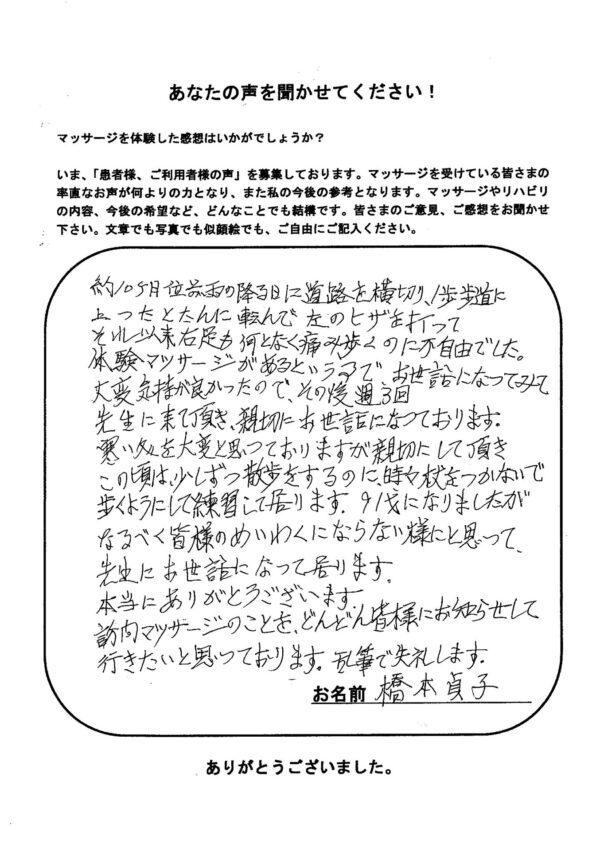 あなたの声を聞かせてください！
マッサージを体験した感想はいかがでしょうか？
いま、「患者様、ご利用者様の声」を募集しております。マッサージを受けている皆さまの
率直なお声が何よりの力となり、また私の今後の参考となります。マッサージやリハビリ
の内容、今後の希望など、どんなことでも結構です。皆さまのご意見、ご感想をお聞かせ
下さい。文章でも写真でも似顔絵でも、ご自由にご記入ください。
約10ヶ月位前雨の降る日に道路を横切り、歩道に
上ったとたんに転んで左のヒザを打って
それ以来右足も何となく痛み歩くのに不自由でした。
体験マッサージがあるという お世話になってみて
大変気持が良かったので、その後週3回
先生に来て頂き、親切にお世話になっております。
寒い を大変と思っておりますが親切にして頂き
この頃は、少しずつ散歩をするのに、時々杖をつかないで
歩くようにして練習して居ります。91才になりましたが
なるべく皆様のめいわくにならない様にと思って、
先生にお世話になって居ります。
本当にありがとうございます。
訪問マッサージのことを、どんどん皆様にお知らせして
行きたいと思っております。乱筆で失礼します。
お名前 橋本貞子
ありがとうございました。